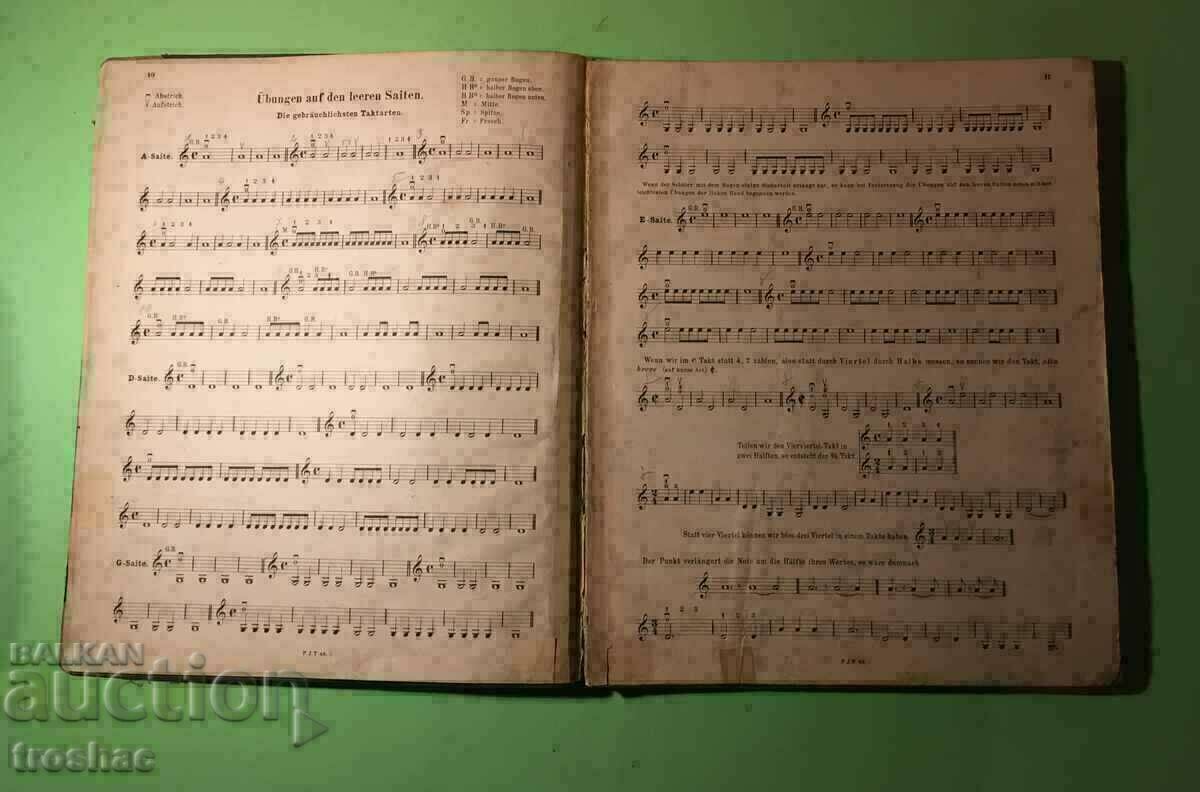 10
Abstrich.
Aufstrich.
Übungen auf den leeren Saiten.
Die gebräuchlichsten Taktarten.
G.B. = ganzer Bogen.
H.Bo = halber Bogen oben.
H.Bu = halber Bogen unten.
M = Mitte.
Sp = Spitze.
Fr. = Frosch.
A-Saite.
G.B.
1 2 3 4
1 2 3 4
1 2 3 4
1 2 3 4
M
G.B.
G.B.
D-Saite.
G.B.
G-Saite.
G.B.
P.J.T.
11
Wenn der Schüler mit dem Bogen einige Sicherheit erlangt hat, so kann bei Fortsetzung der Übungen auf den leeren Saiten neben mit den
leichtesten Übungen der linken Hand begonnen werden.
E-Saite.
G.B.
G.B.
Wenn wir im C Takt statt 4, 2 zählen, also statt durch Viertel durch Halbe messen, so nennen wir den Takt, alla
breve (auf kurze Art) ¢.
1 2 3 4
Teilen wir den Vierviertel-Takt in
zwei Hälften, so entsteht der 2/4 Takt.
1 2 1 2
Statt vier Viertel können wir blos drei Viertel in einem Takte haben.
Der Punkt verlängert die Note um die Hälfte ihres Wertes, es wäre demnach
1 2 3
P.J.T.
BALKAN
auction
troshac